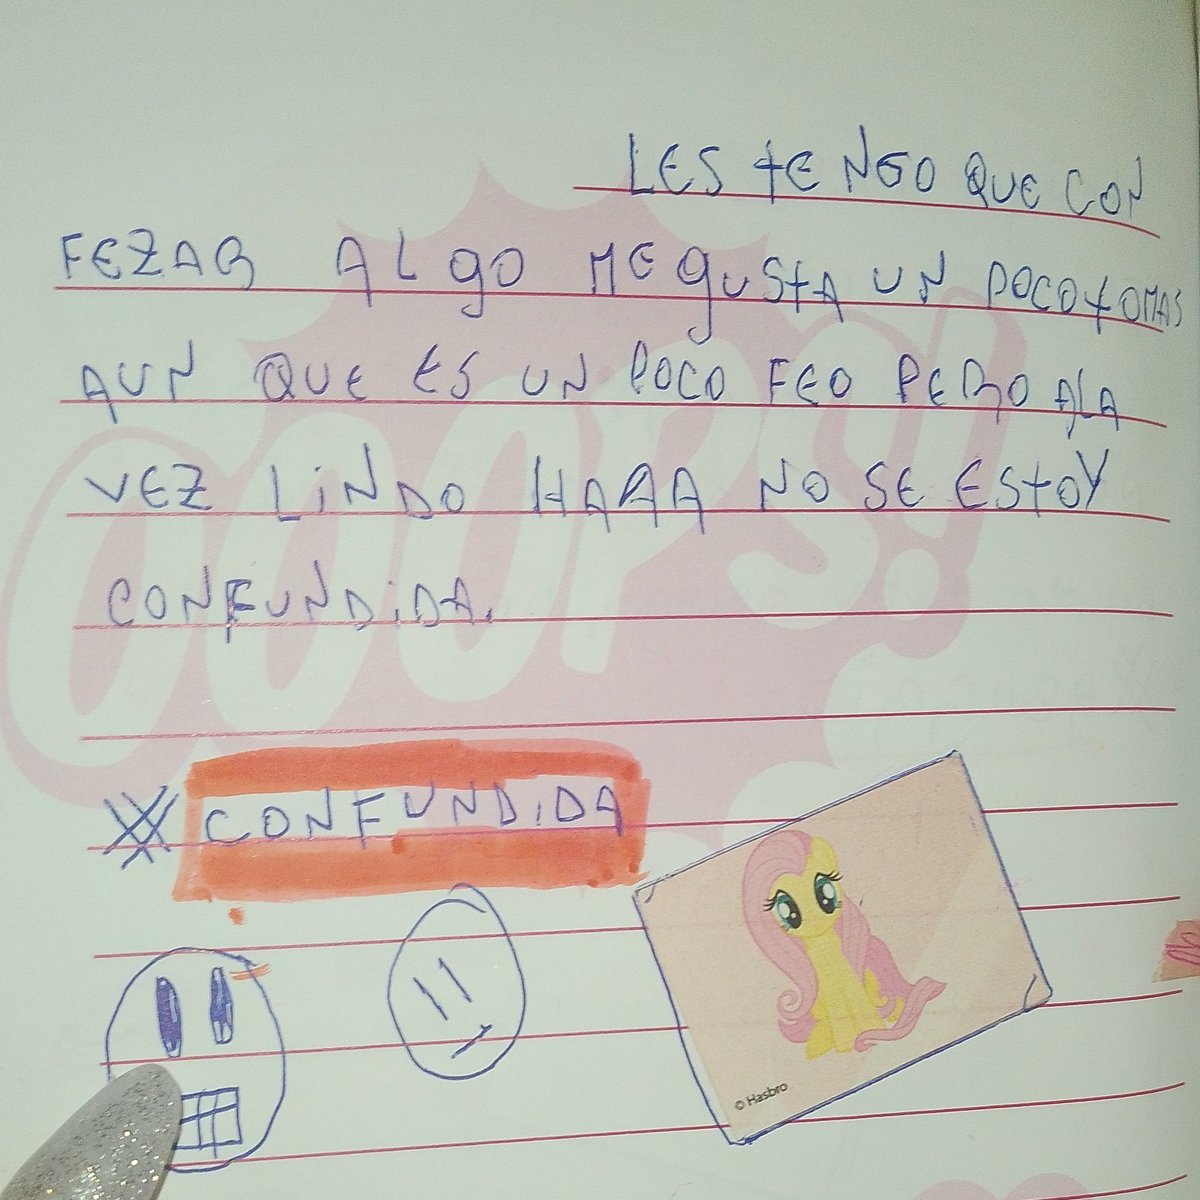 LES tENGO QUE CON
FEZAR ALgO ME gUStA UN POCO tOMAS
AUN QUE ES UN POCO FEO PERO ALA
VEZ LiNDO HAAA NO SE EStOY
CONFUNDiDA.
OOOPS!!
CONFUNDiDA
© Hasbro